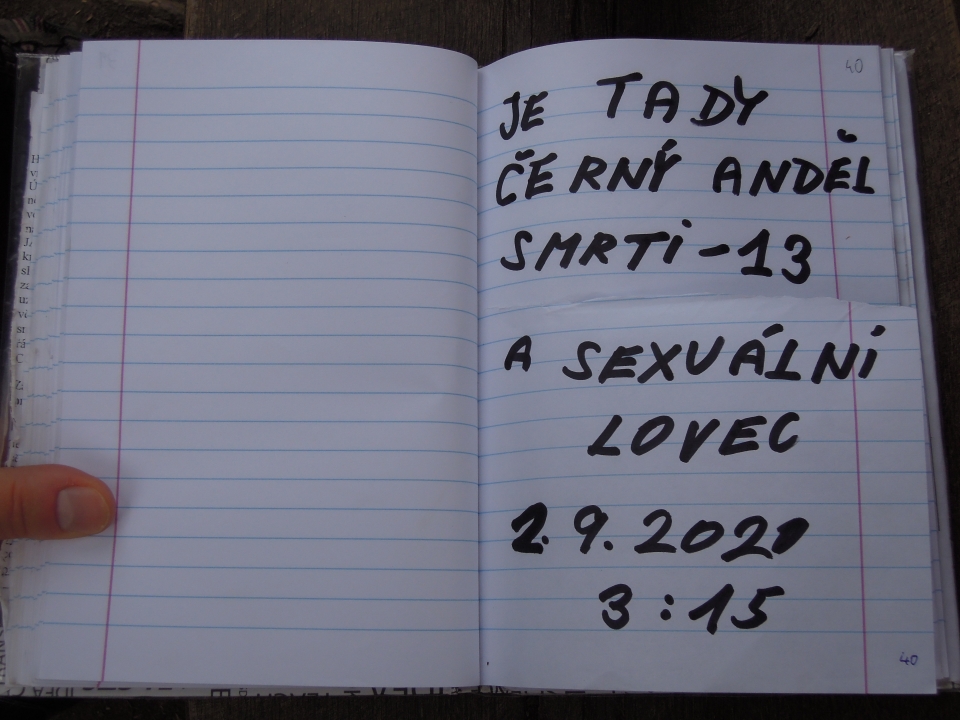 40
JE TADY
ČERNÝ ANDĚL
SMRTI-13
A SEXUÁLNÍ
LOVEC
2.9.2020
3:15
40